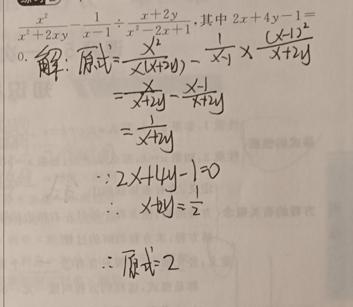 x²/(x²+2xy) - 1/(x-1) ÷ (x+2y)/(x²-2x+1), 其中 2x+4y-1=
0.
解: 原式 = x²/(x(x+2y)) - 1/(x-1) × (x-1)²/(x+2y)
= x/(x+2y) - (x-1)/(x+2y)
= 1/(x+2y)
∵ 2x+4y-1=0
∴ x+2y = 1/2
∴ 原式=2